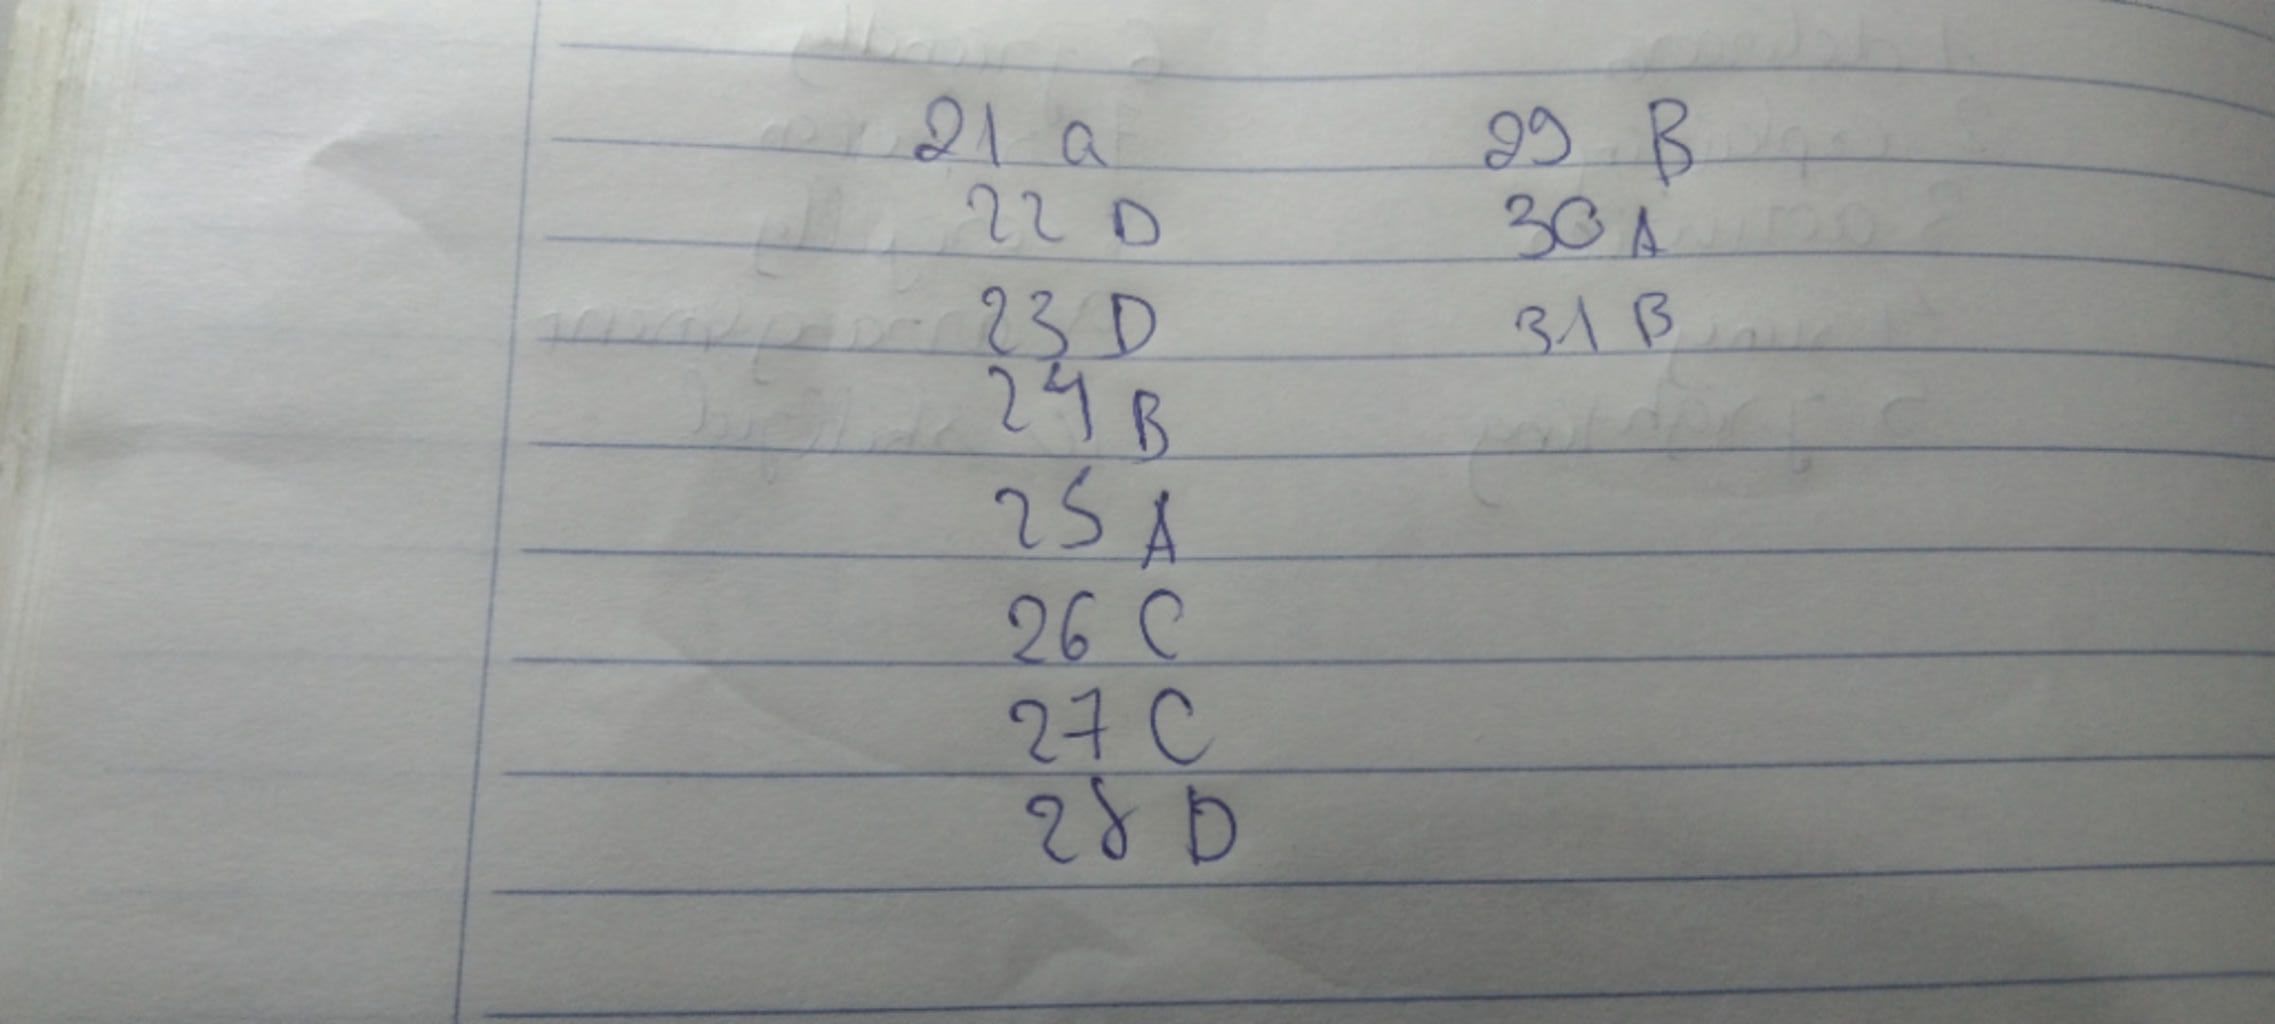 21 a
22 D
23 D
24 B
25 A
26 C
27 C
28 D
29 B
30 A
31 B